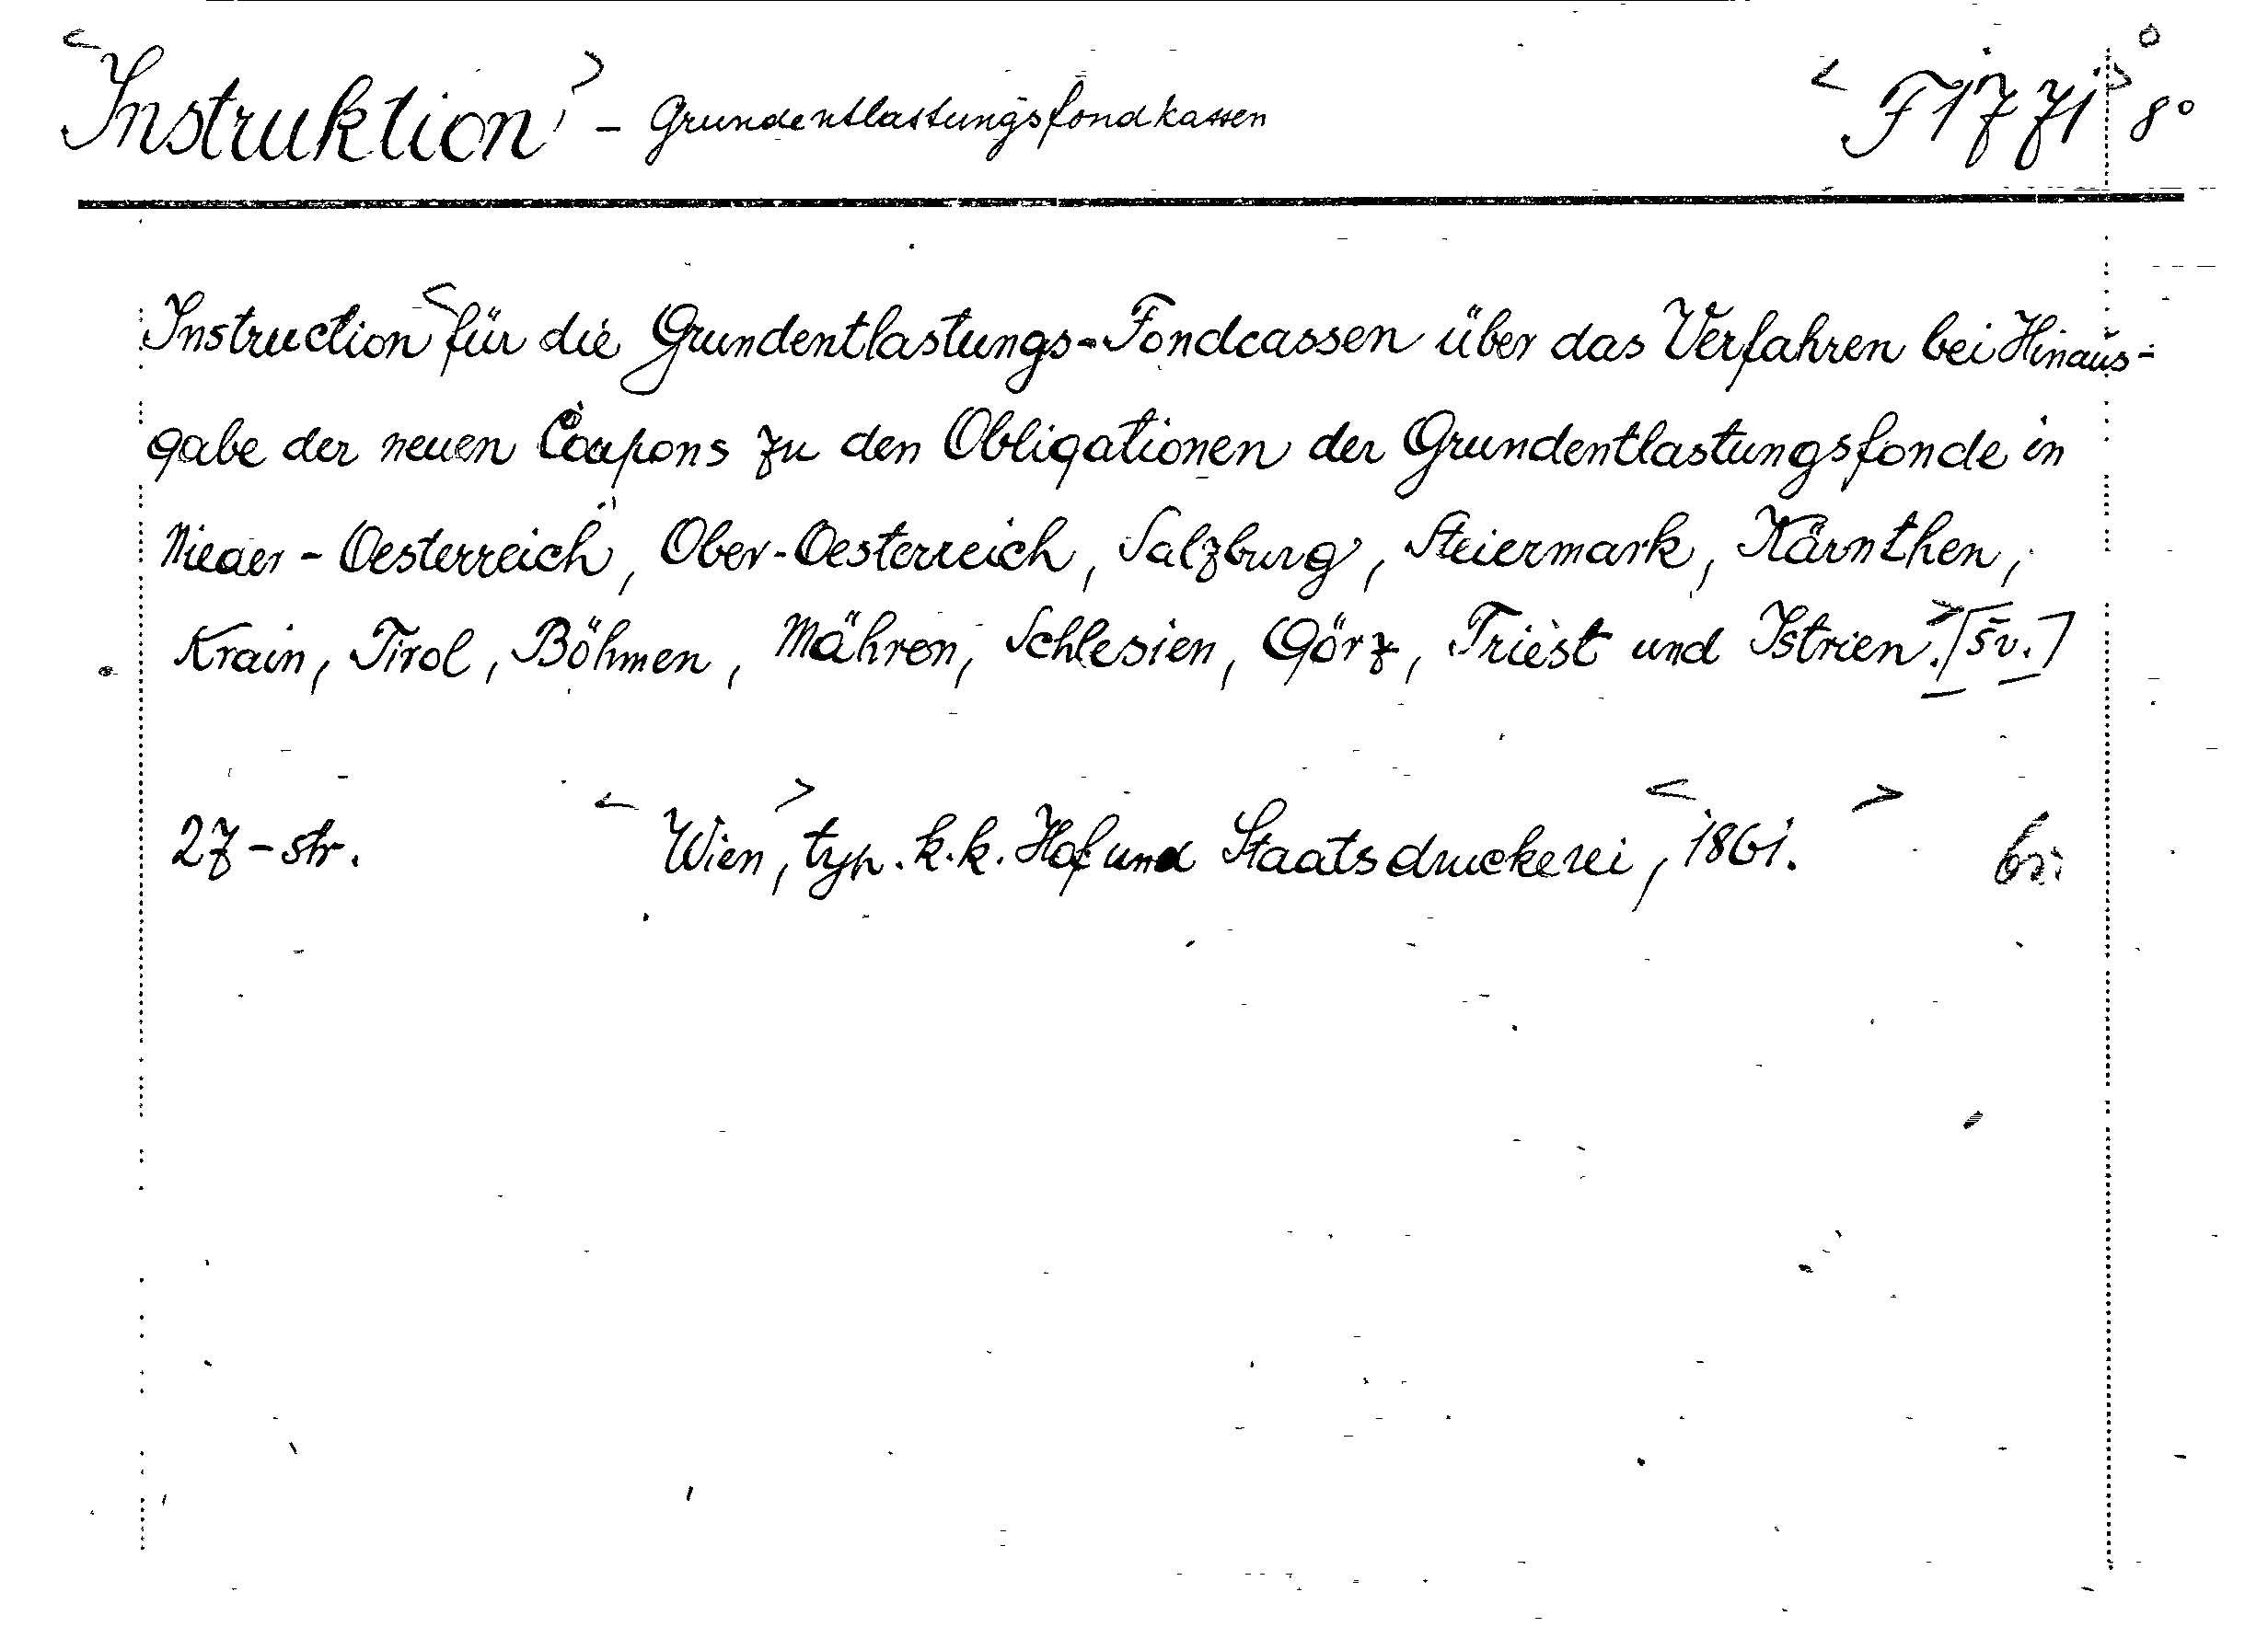 <Instruktion> - Grundentlastungsfondkassen <F 1771> 8°
Instruction <für die Grundentlastungs-Fondcassen über das Verfahren bei Hinaus-
gabe der neuen Coupons zu den Obligationen der Grundentlastungsfonde in
Nieder-Oesterreich, Ober-Oesterreich, Salzburg, Steiermark, Kärnthen,
Krain, Tirol, Böhmen, Mähren, Schlesien, Görz, Triest und Istrien.> [šv.]
27-str. <Wien>, typ. k.k. Hof und Staatsdruckerei, <1861.>